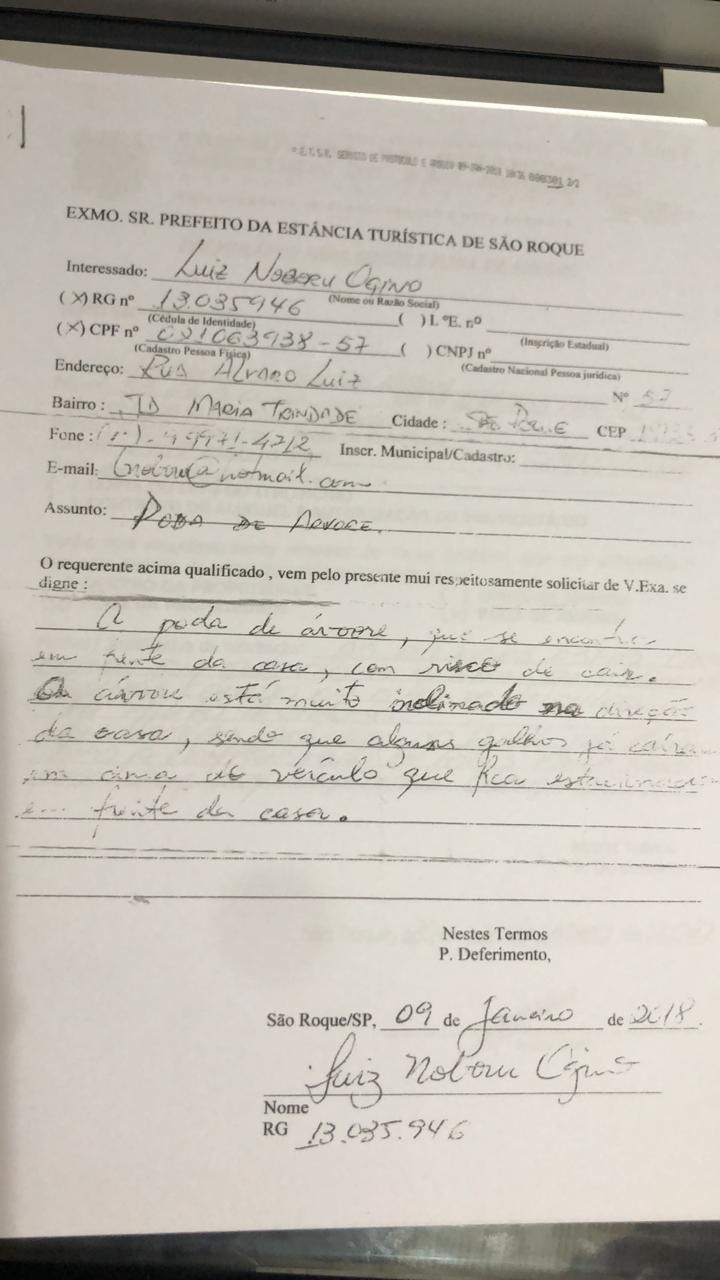 SERVICO DE PROTOCOLO E
EXMO. SR. PREFEITO DA ESTÂNCIA TURÍSTICA DE SÃO ROQUE
Interessado: Luiz Noboru Ogino
(Nome ou Razão Social)
(X) RG nº 13.035.946 ( ) I. ºE. nº
(Cédula de Identidade) (Inscrição Estadual)
(X) CPF nº 021063938-57 ( ) CNPJ nº
(Cadastro Pessoa Física) (Cadastro Nacional Pessoa jurídica)
Endereço: Rua Alvaro Luiz Nº 57
Bairro : JD Maria Trindade Cidade : São Roque CEP
Fone : 99971-4212 Inscr. Municipal/Cadastro:
E-mail: @hotmail.com
Assunto: PODA DE ARVORE.
O requerente acima qualificado , vem pelo presente mui respeitosamente solicitar de V.Exa. se
digne :
A poda de árvore, que se encontra
em frente da casa, com risco de cair.
A árvore está muito inclinado na direção
da casa, sendo que alguns galhos já caíram
em cima do veículo que fica estacionado
em frente da casa.
Nestes Termos
P. Deferimento,
São Roque/SP, 09 de Janeiro de 2018.
Luiz Noboru Ogino
Nome
RG 13.035.946